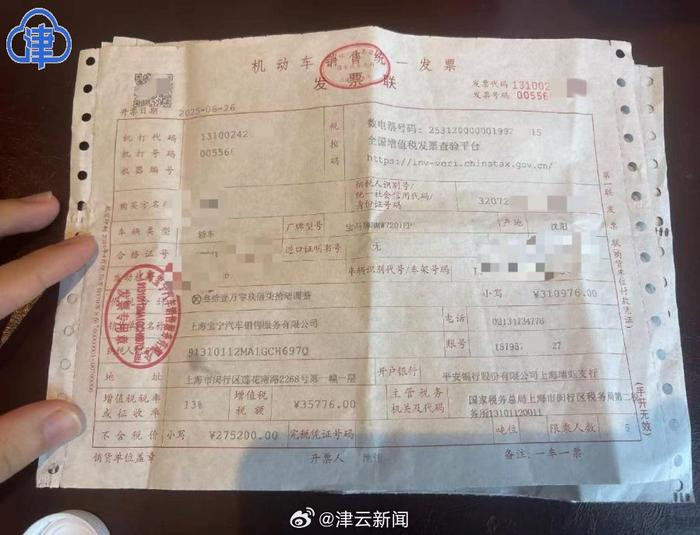 津
机动车销售统一发票
发票联
发票代码 13100
发票号码 0056
开票日期 2025-08-26
机打代码 13100242
机打号码 00556
机器编号
税控码
数电票号码:25312000000199 15
全国增值税发票查验平台
https://inv-veri.chinatax.gov.cn/
购买方名称
纳税人识别号/
统一社会信用代码/
身份证号码
32072
车辆类型 轿车 厂牌型号 产地 沈阳
合格证号 进口证明书号 无
车辆识别代号/车架号码
⊗叁拾壹万零玖佰柒拾陆圆整 小写 ¥310976.00
上海宝宁汽车销售服务有限公司 电话 02134734776
91310112MA1GCH697Q 账号 27
地址 上海市闵行区莲花南路2268号第一幢一层 开户银行 平安银行股份有限公司上海瑞虹支行
增值税税率或征收率 13% 增值税税额 ¥35776.00 主管税务机关及代码 国家税务总局上海市闵行区税务局第二
13101120011
不含税价 小写 ¥275200.00 完税凭证号码 吨位 限乘人数 5
销货单位盖章 开票人 备注:一车一票
第一联 发票联
(手开无效)
发票专用章
@津云新闻